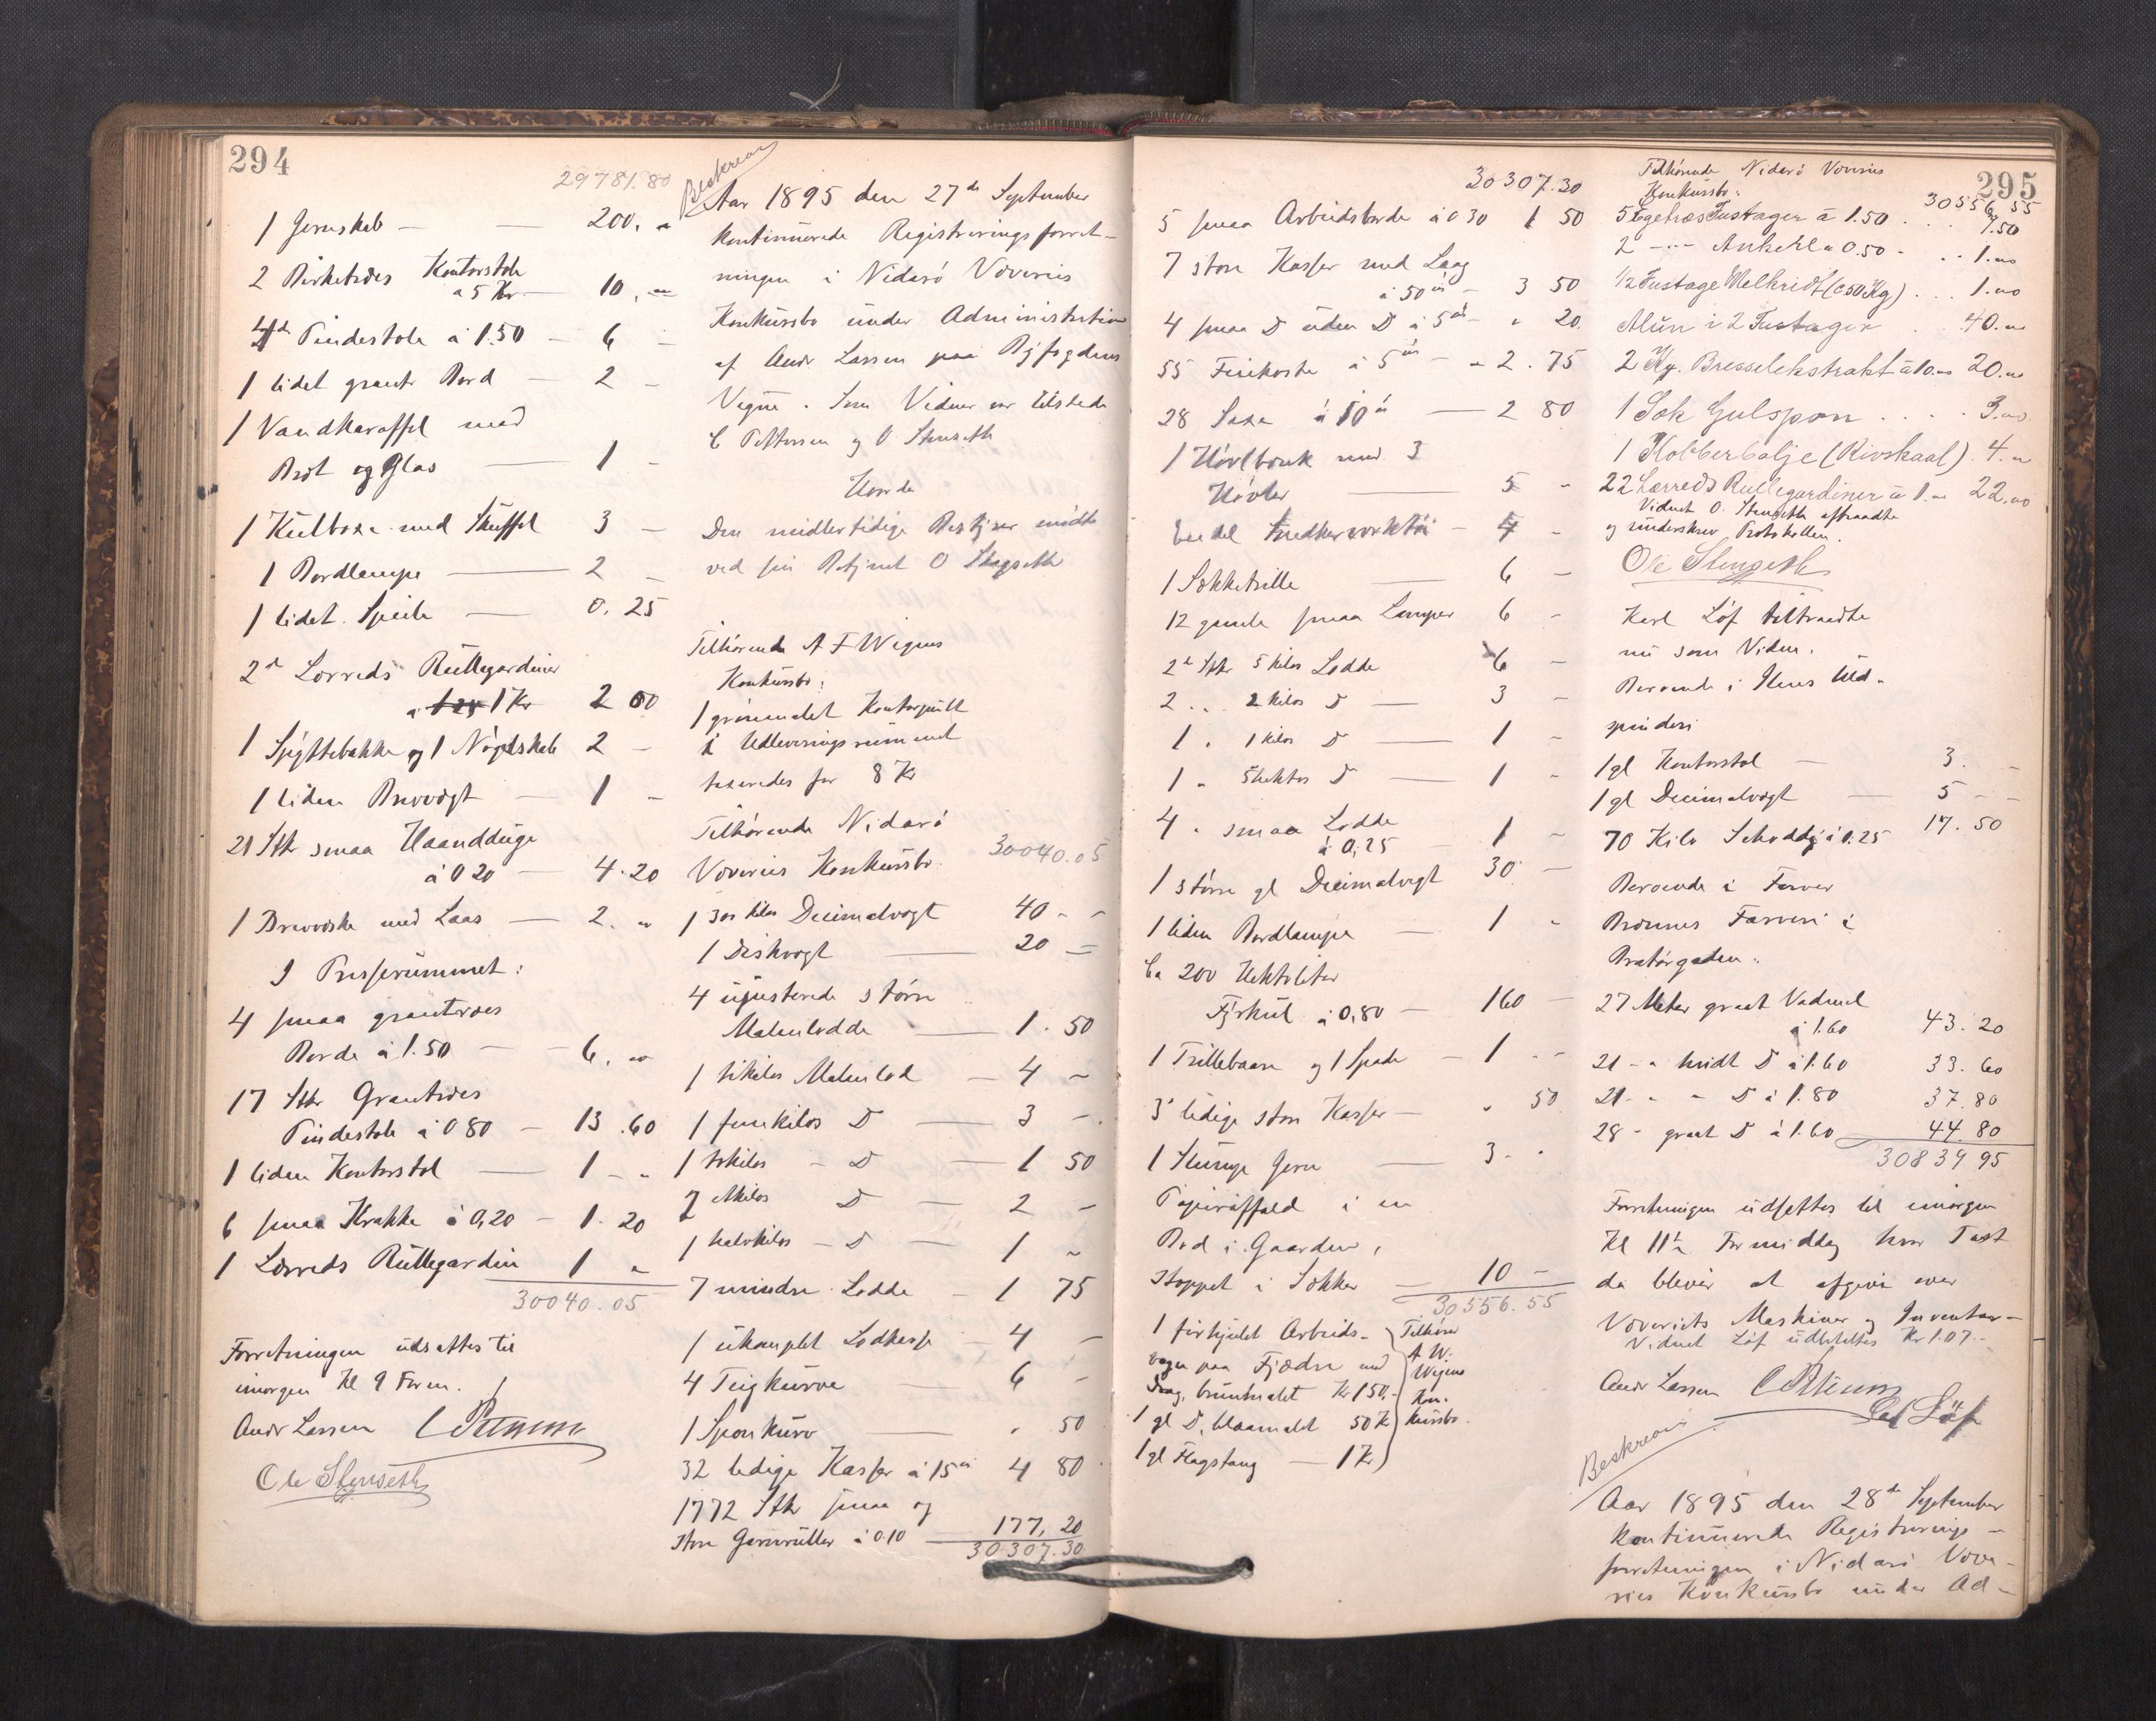 294
29781.80
1 Jernskab — — 200. "
2 Birketræes Kontorstole
a 5 Kr — 10. "
4 de Pindestole à 1.50 — 6 —
1 lidet grant Bord — 2 —
1 Vandkaraffel med
Bret og Glas — 1 —
1 Kulboxe med Skuffel 3 —
1 Bordlampe — 2 —
1 lidet Speile — 0.25
2 Lærreds Rullegardiner
a 1 Kr 2 00
1 Spyttebakke og 1 Nøgelskab 2 —
1 liden Brevvægt — 1 —
21 Stk smaa Haandduge
à 0 20 — 4.20
1 Brevæske med Laas — 2. "
I Presserummet:
4 smaa grantræes
Borde à 1.50 — 6. "
17 Stk Grantræes
Pindestole à 0 80 — 13.60
1 liden Kontorstol — 1 - "
6 smaa Krakke à 0,20 — 1.20
1 Lærreds Rullegardin 1 "
30040.05
Forretningen udsattes til
imorgen Kl 9 Form.
Andr Lassen C Pettersen
Ole Stenseth
Beskreven
Aar 1895 den 27de September
kontinuerede Registreringsforret-
ningen i Nidarø Væveries
Konkursbo under Administration
af Andr Lassen paa Byfogdens
Vegne. Som Vidner var tilstede
C Pettersen og O Stenseth
Hvorda
Den midlertidige Bestyrer mødte
ved sin Betjent O Skogseth
Tilhørende A F Wigens
Konkursbo:
1 grønmalet Kontorpult
i Udleveringsrummet
taxeredes for 8 Kr
Tilhørende Nidarø
Væveries Konkursbo. 30040.05
1 300 kilos Decimalvægt 40 - -
1 Diskvægt — 20 —
4 ujusterede større
Malmlodde — 1.50
1 tikilos Malmlod — 4 —
1 femkilos D — 3 -
1 tokilos - D — 1 50
2 etkilos D — 2 -
1 halvkilos - D — 1 "
7 mindre Lodde — 1 75
1 ukomplet Lodkasse — 4 —
4 Teigkurve — 6 -
1 Sponkurv — " 50
32 ledige Kasser à 15 ø 4 80
1772 Stk smaa og
store Garnruller à 0.10 — 177,20
30307.30
295
30307.30
5 smaa Arbeidsborde à 0 30 1 50
7 store Kasser med Laag
à 50 ø — 3 50
4 smaa D uden D à 5 ø - " 20.
55 Feiekoste à 5 ø — " 2.75
28 Saxe à 10 ø — 2 80
1 Høvlbænk med 3
Høvler — 5 "
En del Snedkerverktøi — 4 -
1 Sækketrille — 6 —
12 gamle smaa Lamper 6 -
2 Stk 5 kilos Lodde 6 —
2 .. 2 kilos D — 3 -
1 " 1 kilos D — 1 -
1 " 5 hektos D — 1 "
4 " smaa Lodde
à 0,25 1 -
1 større gl Decimalvægt 30 —
1 liden Bordlampe — 1 "
Ca 200 Hektoliter
Fyrkul à 0,80 — 160 —
1 Trillebaare og 1 Spade — 1 - -
3 ledige store Kasser — " 50
1 Stump Jern — 3 - "
Papiraffald i en
Bod i Gaarden,
stoppet i Sække — 10 -
30556.55
1 firhjulet Arbeids-
vogn paa Fjædre med
Drag, brunmalet Kr 150,-
1 gl D, blaamalet 50 K
1 gl Flagstang — 1 K
Tilhører
A W.
Wigens
Kon-
kursbo.
Tilhørende Nidarø Væveries
Konkursbo: 30556 55
5 Egetræs Fustager à 1.50 . . . 7.50
2 -"- Ankerl a 0.50 - . . 1.00
1/2 Fustage Melkridt (c 50 Kg) . . . 1.00
Alun i 2 Fustager . . 40.00
2 Kg. Bresselekstrakt à 10.00 20.00
1 Sæk Gulspon . . . . 3.00
1 Kobberbalje (Rivskaal) . 4. "
22 Lærreds Rullegardiner à 1.00 22.00
Vidnet O. Stenseth aftraadte
og underskrev Protokollen.
Ole Stenseth
Karl Löf tiltraadte
nu som Vidne.
Beroende i Ilens Uld-
spinderi
1 gl Kontorstol — 3. -
1 gl Decimalvægt — 5 - -
70 Kilo Schoddy à 0.25 17.50
Beroende i Farver
Brønnes Farveri i
Bratørgaden.
27 Meter graat Vadmel
à 1.60 43.20
21 - " hvidt D à 1.60 33.60
21 - " - D à 1.80 37.80
28 " graat D à 1.60 44.80
30839 95
Forretningen udsattes til imorgen
Kl 11½ Formiddag hvor Taxt
da bliver at afgive over
Væveriets Maskiner og Inventar —
Vidnet Löf udbetaltes Kr 1.07.-
Andr Lassen C Pettersen
Carl Löf
Beskreven
Aar 1895 den 28de September
kontinuerede Registrerings-
forretningen i Nidarø Væve-
ries Konkursbo under Ad-